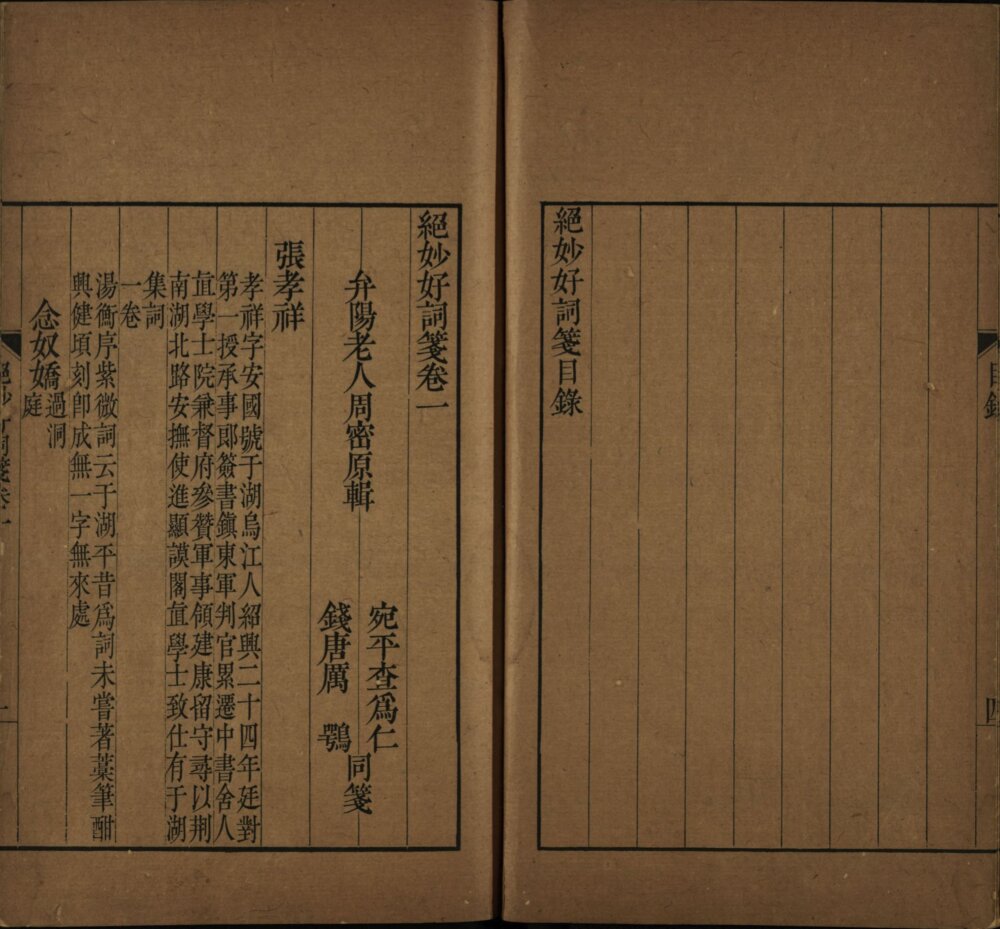 絕妙好詞箋目錄
目錄
四
絕妙好詞箋卷一
弁陽老人周密原輯
宛平查爲仁
錢唐厲 鶚
同箋
張孝祥
孝祥字安國號于湖烏江人紹興二十四年廷對
第一授承事郎簽書鎭東軍判官累遷中書舍人
直學士院兼督府參贊軍事領建康留守尋以荆
南湖北路安撫使進顯謨閣直學士致仕有于湖
集詞
一卷
湯衡序紫微詞云于湖平昔爲詞未嘗著藁筆酣
興健頃刻卽成無一字無來處
念奴嬌過洞
庭
絕妙好詞箋卷一
一